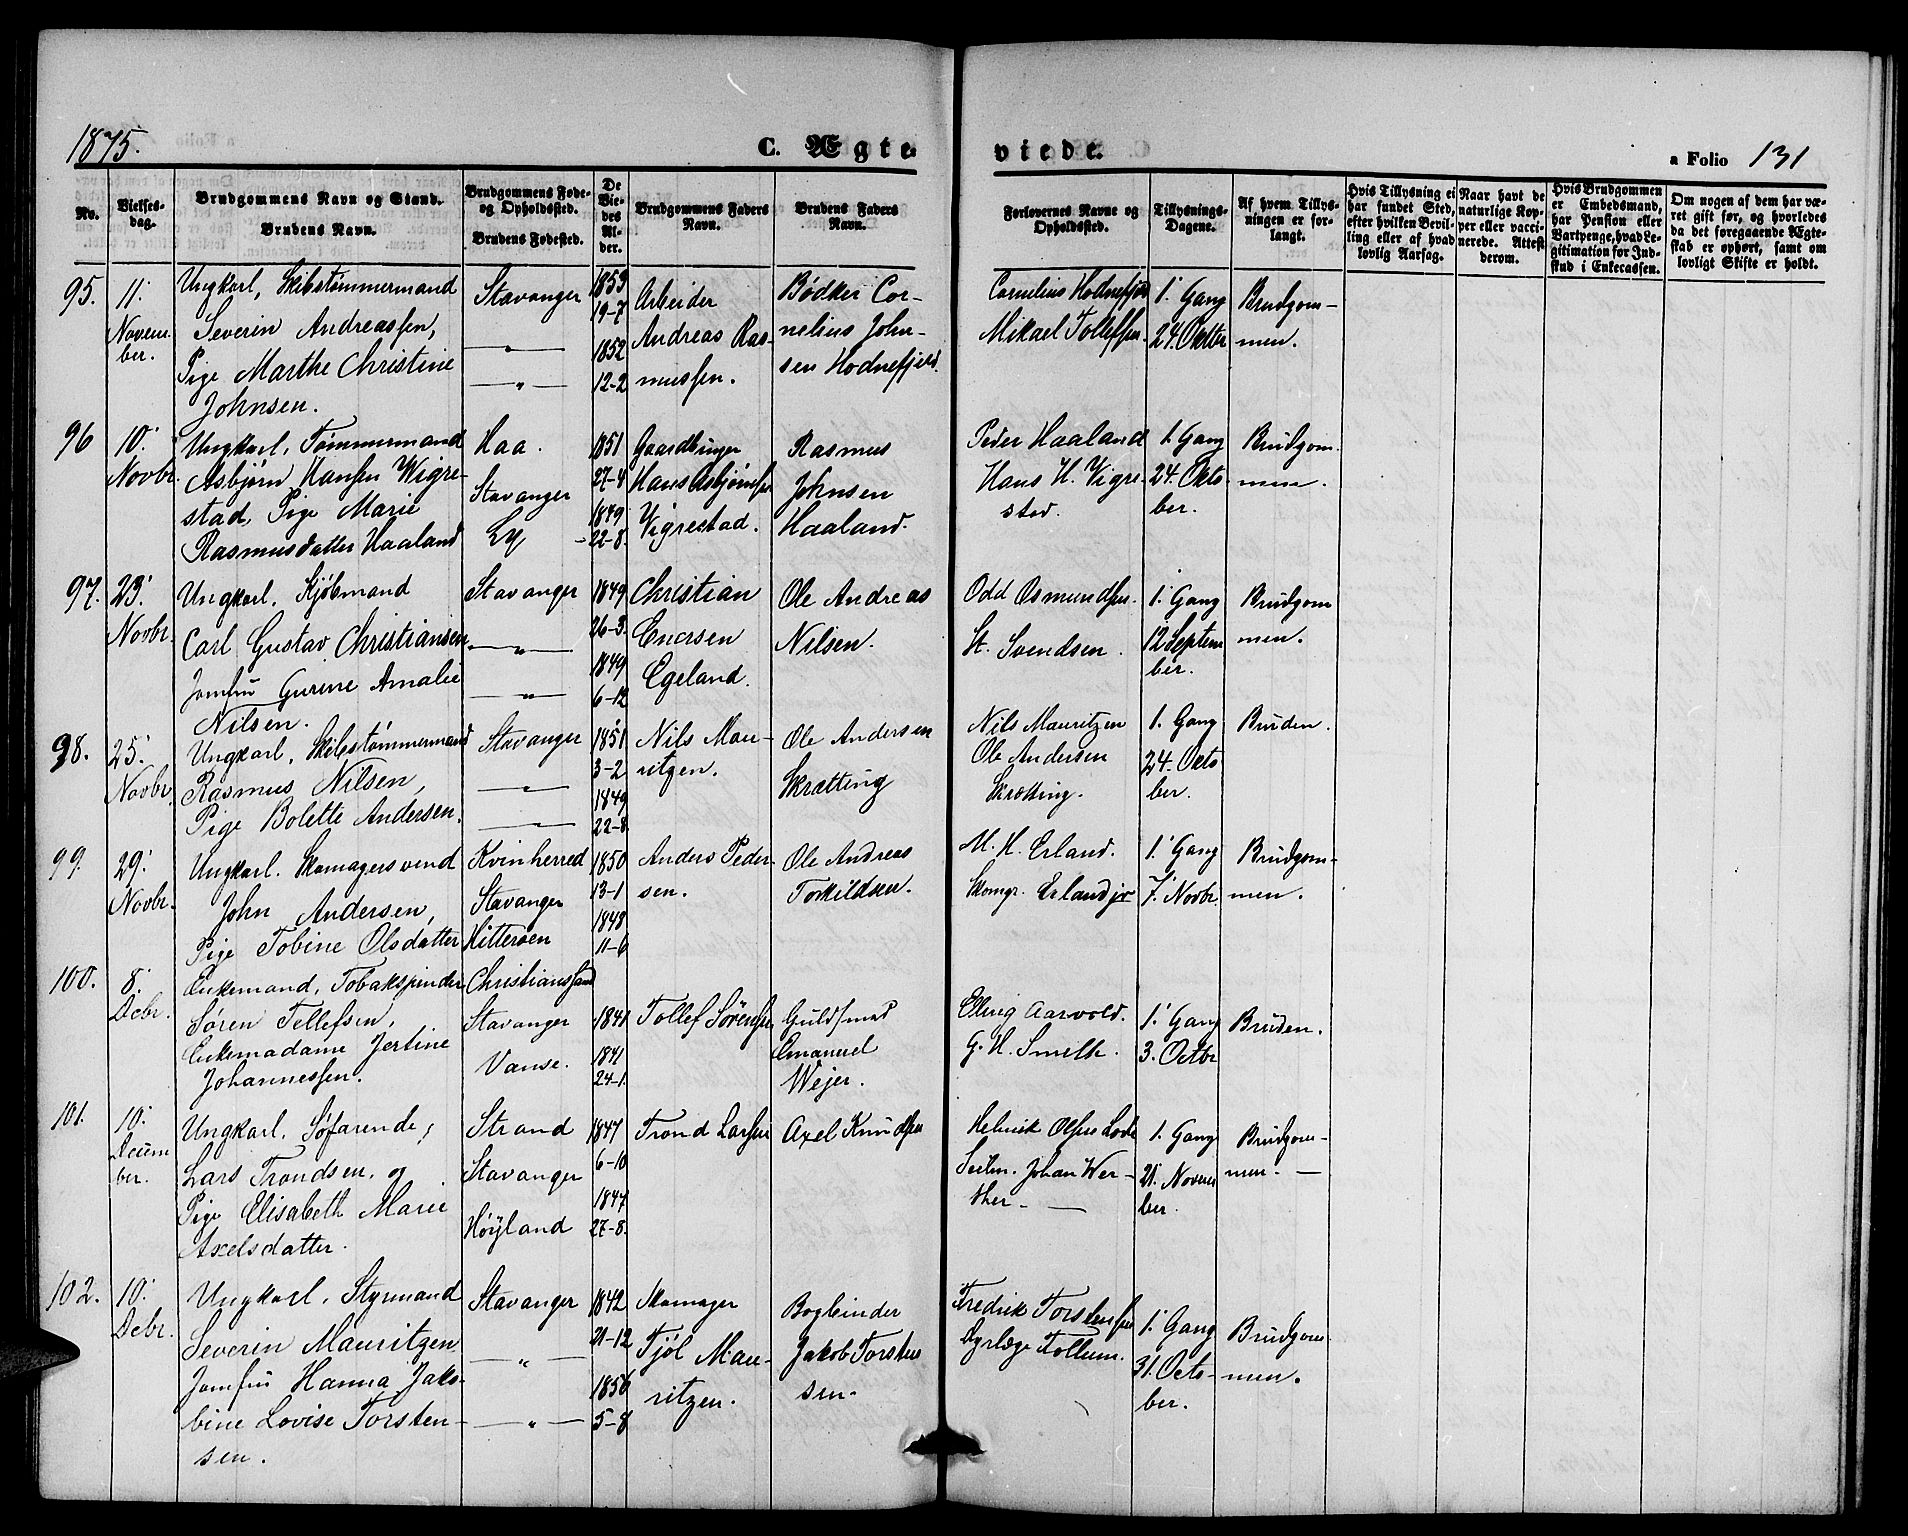 1875.
C. Ægte
viede.
a Folio 131
No.
Vielses-
dag.
Brudgommens Navn og Stand.
Brudens Navn.
Brudgommens Føde-
og Opholdssted.
Brudens Fødested.
De
Vie-
des
Al-
der.
Brudgommens Faders
Navn.
Brudens Faders
Navn.
Forlovernes Navne og
Opholdssted.
Tillysnings-
Dagene.
Af hvem Tillys-
ningen er for-
langt.
Hvis Tillysning ei
har fundet Sted,
efter hvilken Bevil-
ling eller af hvad
lovlig Aarsag.
Naar havt de
naturlige Kop-
per eller vacci-
nerede. Attest
derom.
Hvis Brudgommen
er Embedsmand,
har Pension eller
Vartpenge, hvad Le-
gitimation for Ind-
skud i Enkecassen.
Om nogen af dem har væ-
ret gift før, og hvorledes
da det foregaaende Ægte-
skab er ophørt, samt om
lovligt Skifte er holdt.
95.
11'
Novem
ber.
Ungkarl, Skibstømmermand
Severin Andreassen,
Pige Marthe Christine
Johnsen.
Stavanger
— " —
— " —
1853
19-7
1852
12-2
Arbeider
Andreas Ras-
mussen.
Bødker Cor-
nelius John-
sen Hodnefjeld.
Cornelius Hodnefjeld
Mikael Tollefsen.
1' Gang
24. Oktbr
Brudgom-
men.
96
10'
Novbr.
Ungkarl, Tømmermand
Asbjørn Hansen Wigre-
stad, Pige Marie
Rasmusdatter Haaland
Haa.
Stavanger
Ly -
1851
27-4
1849
22-8.
Gaardbruger
Hans Asbjørnsen
Vigrestad.
Rasmus
Johnsen
Haaland.
Peder Haaland
Hans H. Vigre-
stad.
1. Gang
24. Okto
ber.
Brudgom
men.
97.
23'
Novbr.
Ungkarl, Kjøbmand
Carl Gustav Christiansen
Jomfru Gurine Amalie
Nilsen.
Stavanger
— " —
— " —
1849
26-3.
1849
6-12
Christian
Enersen
Egeland.
Ole Andreas
Nilsen.
Odd Osmundsen.
St. Svendsen.
1' Gang
12 Septem
ber.
Brudgom
men.
98.
25'
Novbr.
Ungkarl, Skibstømmermand
Rasmus Nilsen,
Pige Bolette Andersen.
Stavanger
— " —
— " —
1851
3-2
1849
22-8.
Nils Mau-
ritzen.
Ole Andersen
Skrætting
Nils Mauritzen
Ole Andersen
Skrætting.
1. Gang
24. Octo
ber.
Bruden.
99.
29'
Novbr.
Ungkarl. Skomagersvend
John Andersen,
Pige Tobine Olsdatter
Kvinherred
Stavanger
Hitterøen
1850
13-1
1848
11-6
Anders Peder-
sen.
Ole Andreas
Torkildsen.
M. H. Erland.
Skomgr. Erland jr
1' Gang
7. Novbr.
Brudgom-
men.
100.
8'
Decbr.
Enkemand, Tobakspinder
Søren Tellefsen,
Enkemadame Jertine
Johannessen.
Christianssand
Stavanger
Vanse.
1841
1841
24-1.
Tollef Sørensen
Guldsmed
Emanuel
Wejer.
Elling Aarvold.
G. H. Smith.
1' Gang
3. Octbr
Bruden.
101.
10'
Decem
ber.
Ungkarl, Søfarende,
Lars Trondsen, og
Pige Elisabeth Marie
Axelsdatter.
Strand
Stavanger
Høyland
1847
6-10
1847
27-8.
Trond Larsen
Axel Knudsen
Helmik Olsen Lode
Seilm. Johan Wer-
ther. —
1. Gang
21. Novem
ber.
Brudgom-
men. —
102.
10'
Decbr.
Ungkarl, Styrmand
Severin Mauritzen
Jomfru Hanna Jako-
bine Lovise Torsten-
sen.
Stavanger
— " —
— " —
1842
21-12
1856
5-8
Skomager
Tjøl Mau-
ritzen.
Bogbinder
Jakob Torsten
sen.
Fredrik Torstensen
Dyrlæge Tollum.
1' Gang
31. Octo-
ber.
Brudgom-
men.